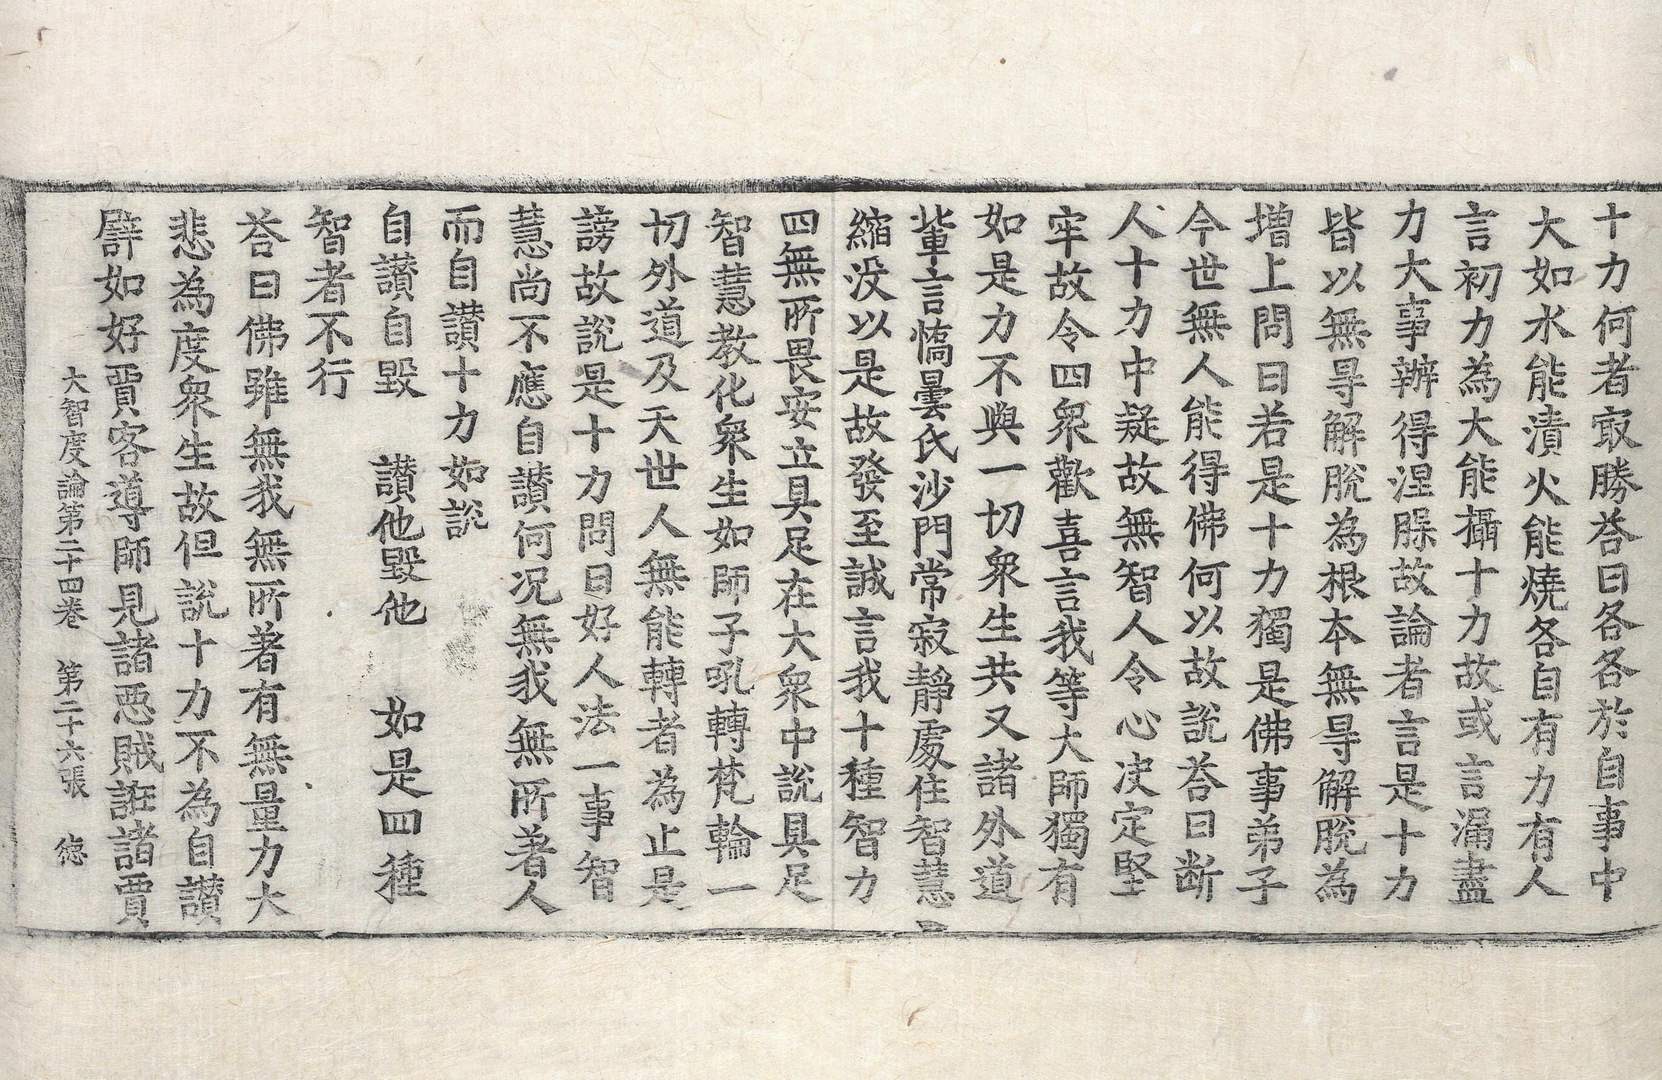 十力何者㝡勝荅曰各各於自事中
大如水能漬火能燒各自有力有人
言初力為大能攝十力故或言漏盡
力大事辦得涅槃故論者言是十力
皆以無㝵解脫為根本無㝵解脫為
增上問曰若是十力獨是佛事弟子
今世無人能得佛何以故說荅曰断
人十力中疑故無智人令心决定堅
牢故令四衆歡喜言我等大師獨有
如是力不與一切衆生共又諸外道
輩言憍曇氏沙門常寂靜處住智慧
縮没以是故發至誠言我十種智力
四無所畏安立具足在大衆中說具足
智慧教化衆生如師子吼轉梵輪一
切外道及天世人無能轉者為止是
謗故說是十力問曰好人法一事智
慧尚不應自讃何况無我無所著人
而自讃十力如說
自讃自毀 讃他毀他 如是四種
智者不行
荅曰佛雖無我無所著有無量力大
悲為度衆生故但說十力不為自讃
譬如好賈客導師見諸惡賊誑諸賈
大智度論第二十四巻 第二十六張 徳